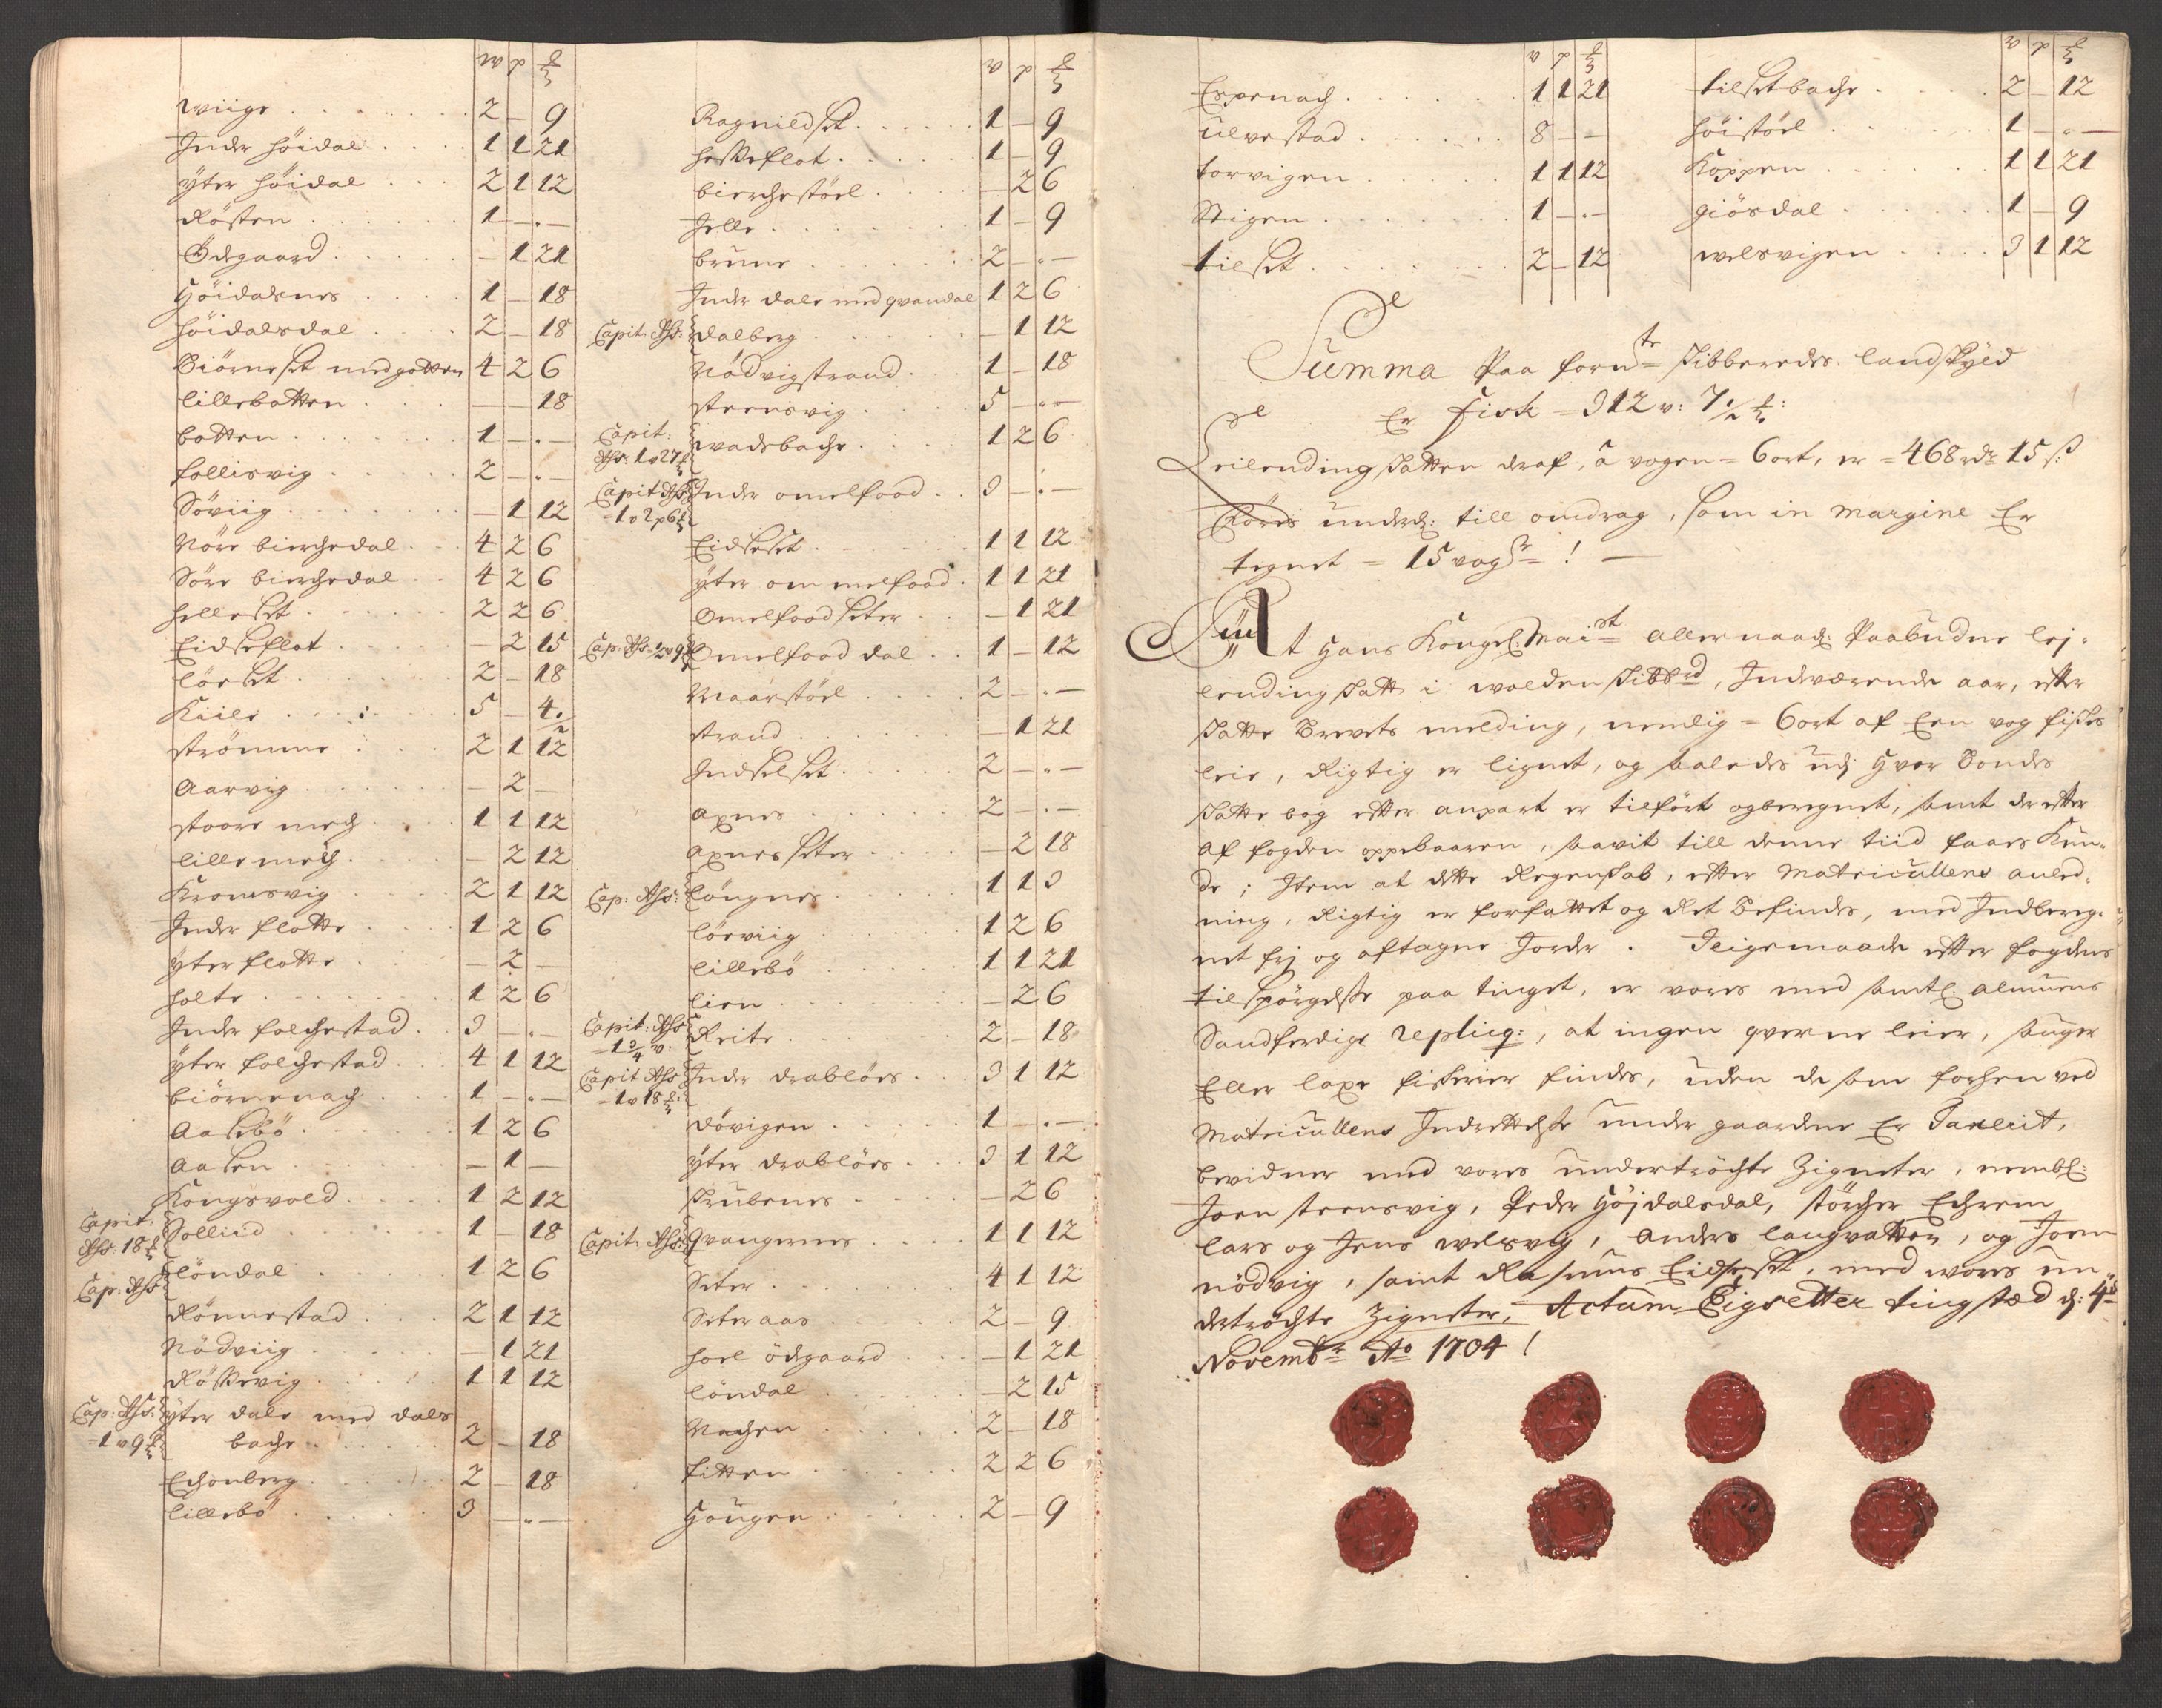 w p ℔
Wiige 2 – 9
Inder Höidal 1 1 21
Yter Höidal 2 1 12
Rösten 1 – . –
Ödegaard – 1 21
Höidalsnes 1 – 18
Höidalsdal 2 – 18
Biörneset med gotten 4 2 6
Lillebotten – – 18
Botten 1 – . –
Follisvig 2 – . –
Söviig – 1 12
Nöre Bierchedal 4 2 6
Söre Bierchedal 4 2 6
Helleset 2 2 6
Eidseflot – 2 15
Löset 2 – 18
Kiile 5 – 4½
Strömme 2 1 12
Aarvig – 2 –
Stoore mech 1 1 12
Lille mech – 2 12
Kromsvig 2 1 12
Inder Flotte 1 2 6
Yter Flotte – 2 –
Holte 1 2 6
Inder Folchestad 3 – . –
Yter Folchestad 4 1 12
Biörnenach 1 – . –
Aasebö 1 2 6
Aasen – 1 –
Kongsvold 1 2 12
Capit: Ahs: 18 ℔ Sollied 1 – 18
Cap: Ahs: Löndal 1 2 6
Rönnestad 2 1 12
Nödviig – 1 21
Rössevig 1 1 12
Cap: Ahs: Yter Dale med Dals
– 1 v 9 ℔ bache 2 – 18
Echonberg 2 – 18
Lillebö 3 – . –
v p ℔
Ragnildset 1 – 9
Hesseflot 1 – 9
Bierchestöel – 2 6
Jelle 1 – 9
Brune 2 – . –
Inder Dale med qvandal 1 2 6
Capit. Ahs: Dalberg – 1 12
Nödvigstrand 1 – 18
Steensvig 5 – . –
Capit: Ahs: 1 v 27 ℔ Wadsbache 1 2 6
Capit Ahs: – 1 v 2 p 6 ℔ Inder omelfood 3 – . –
Eidseset 1 1 12
Yter ommelfood 1 1 21
Omelfood seter – 1 21
Cap: Ahs: ½ v 9 ℔ Omelfood dal 1 – 12
Maarstöel 2 – . –
Strand – 1 21
Indselset 2 – . –
Axnes 2 – . –
Axnes seter – 2 18
Cap: Ahs: Löngnes 1 1 3
Lörviig 1 2 6
Lillebö 1 1 21
Lien – 2 6
Capit: Ahs – 1¾ v: Reite 2 – 18
Capit Ahs – 1 v 18 ℔: Inder Drablös 3 1 12
Dövigen 1 – . –
Yter Drablös 3 1 12
Skubenes – 2 6
Capit. Ahs: Qvangernes 1 1 12
Seter 4 1 12
Seter aas 2 – 9
Hoel ödgaard – 1 21
Löndal – 2 15
Nachen 2 – 18
Fitten 2 2 6
Hougen 2 – 9
v p ℔
Espenach 1 1 21
Ulvestad 8 – –
Torvigen 1 1 12
Stigen 1 – . –
Tilset 2 – 12
v p ℔
Tilsetbache 2 – 12
Höistöel 1 – . –
Koppen 1 1 21
Giösdal 1 – 9
Welsvigen 3 1 12
Summa Paa fornte Skibberedes Landskyld
Er Fisk = 312 v: 7½ ℔:
Leilending skatten deraf, â vogen = 6 ort, er = 468 rdr 15 s:
Föres underd: till omdrag, som in margine Er
tegnet = 15 vogr !
At Hans Kongel: Maist Allernaad: Paabudne lej-
lending skatt i wolden skibbrd, Indværende aar, efter
skatte Brevets melding, nemlig = 6 ort af Een vog fiskes
leie, Rigtig er lignet, og saaledes udj Hver Bondes
skatte bog efter anpart er tilfört og beregnet, samt der efter
af fogden oppebaaren, saavit till denne tiid faaes Kun-
de; Item at dette Regenskab, efter Matricullens anled-
ning, Rigtig er forfattet og Ret Befindes, med Indbereg-
net frj og aftagne Jorder. Iligemaade efter fogdens
tilspörgelse paa tinget, er vores med samtl: almuens
Sandferdige repliq:, at ingen qverne leier, sauger
Eller laxe fiskerier findes, uden de som forhen ved
Matricullens Indrettelse under gaardene Er Taxerit,
bevidner med vores undertröchte Zigneter, nembl:
Joen Steensvig, Peder Höjdalsdal, Störcher Echrem
Lars og Jens Welsvig, Anders Langvatten, og Joen
Nödvig, samt Rasmus Eidseset, med wores un-
dertröchte Zigneter, Actum Eigsetter tingstæd d: 4d
Novembr Ao 1704 !